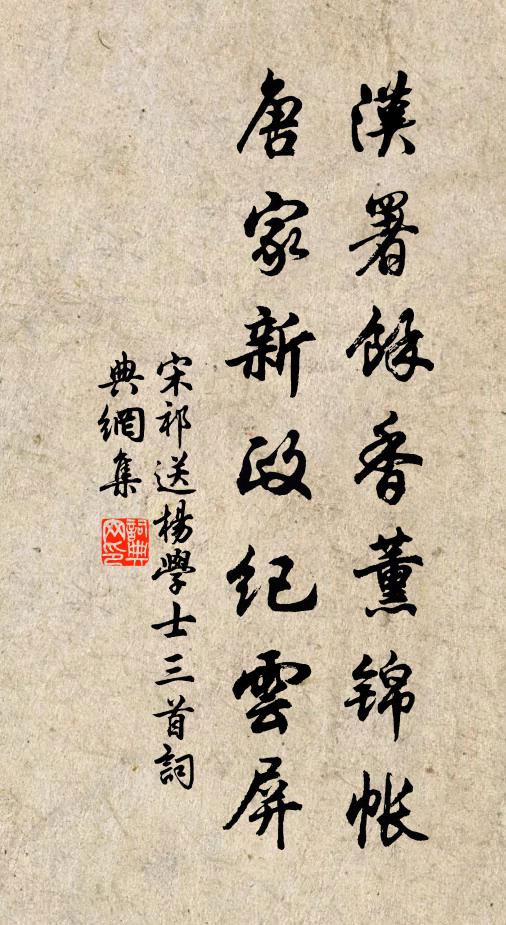 漢署餘香薰錦帳
唐家新政紀雲屏
宋祁送楊學士三首詞
典網集
詞典網印